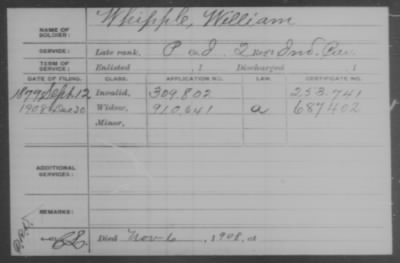 NAME OF SOLDIER: Whipple, William
SERVICE: Late rank, Pvt 2 Regt Ind. Cav.
TERM OF SERVICE: Enlisted , 1 Discharged 1
DATE OF FILING. CLASS. APPLICATION NO. LAW. CERTIFICATE NO.
1879 Sept. 12 Invalid, 309.802 253.741
1908 Dec 30 Widow, 910.641 a 687402
Minor,
ADDITIONAL SERVICES:
REMARKS:
Died Nov 6, 1908, at